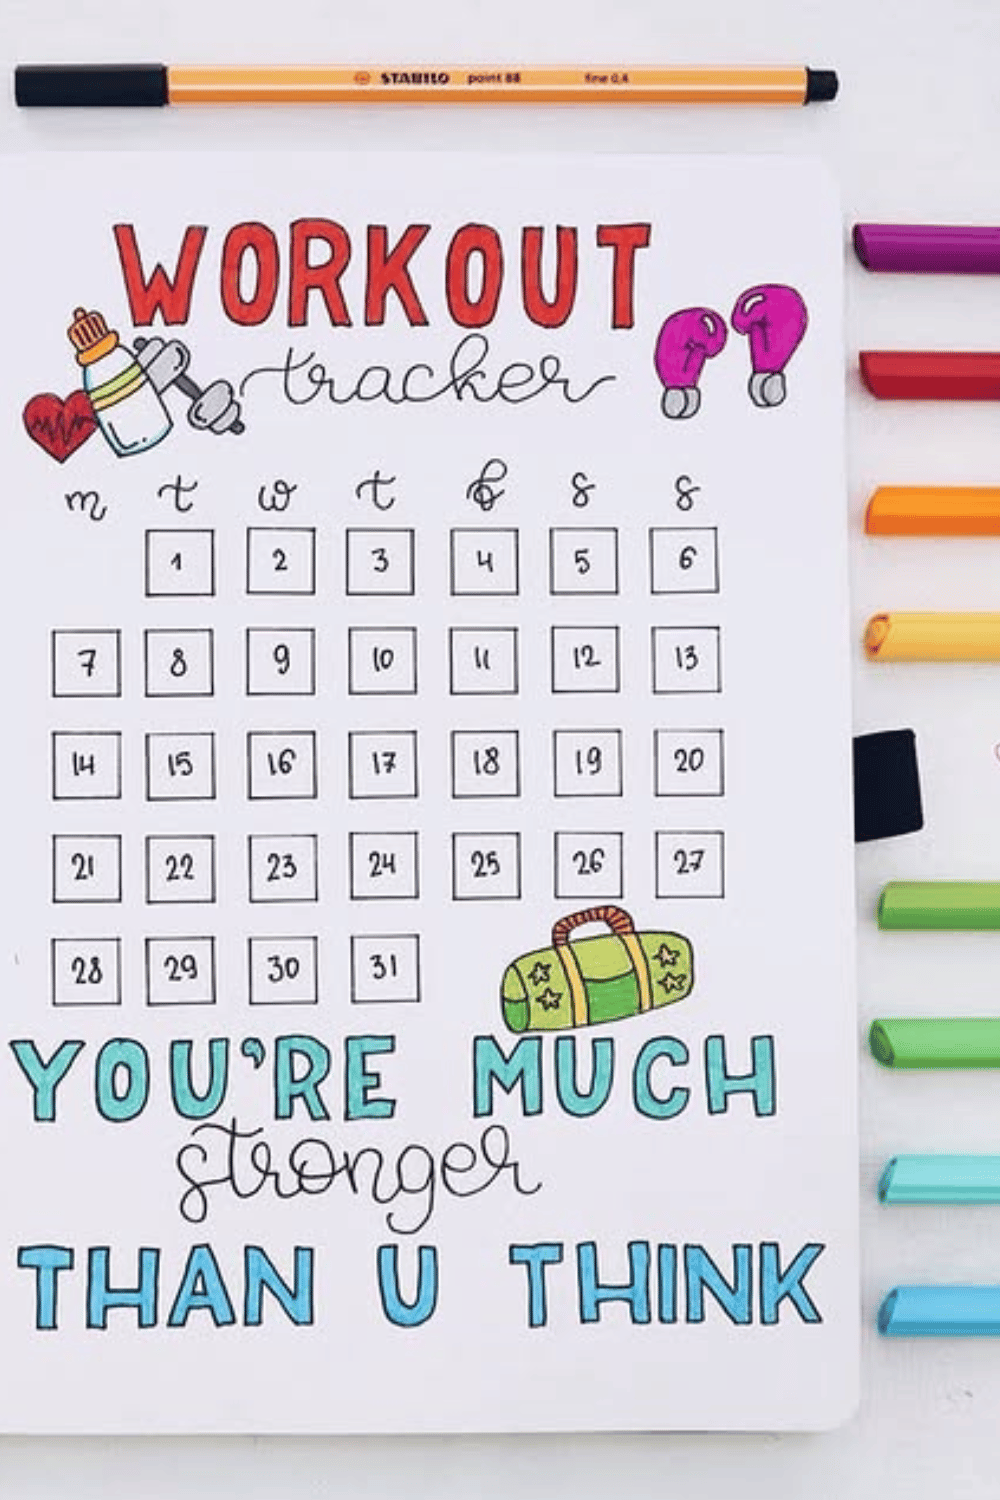 STABILO point 88 fine 0,4
WORKOUT
tracker
m t w t f s s
1 2 3 4 5 6
7 8 9 10 11 12 13
14 15 16 17 18 19 20
21 22 23 24 25 26 27
28 29 30 31
YOU'RE MUCH
stronger
THAN U THINK